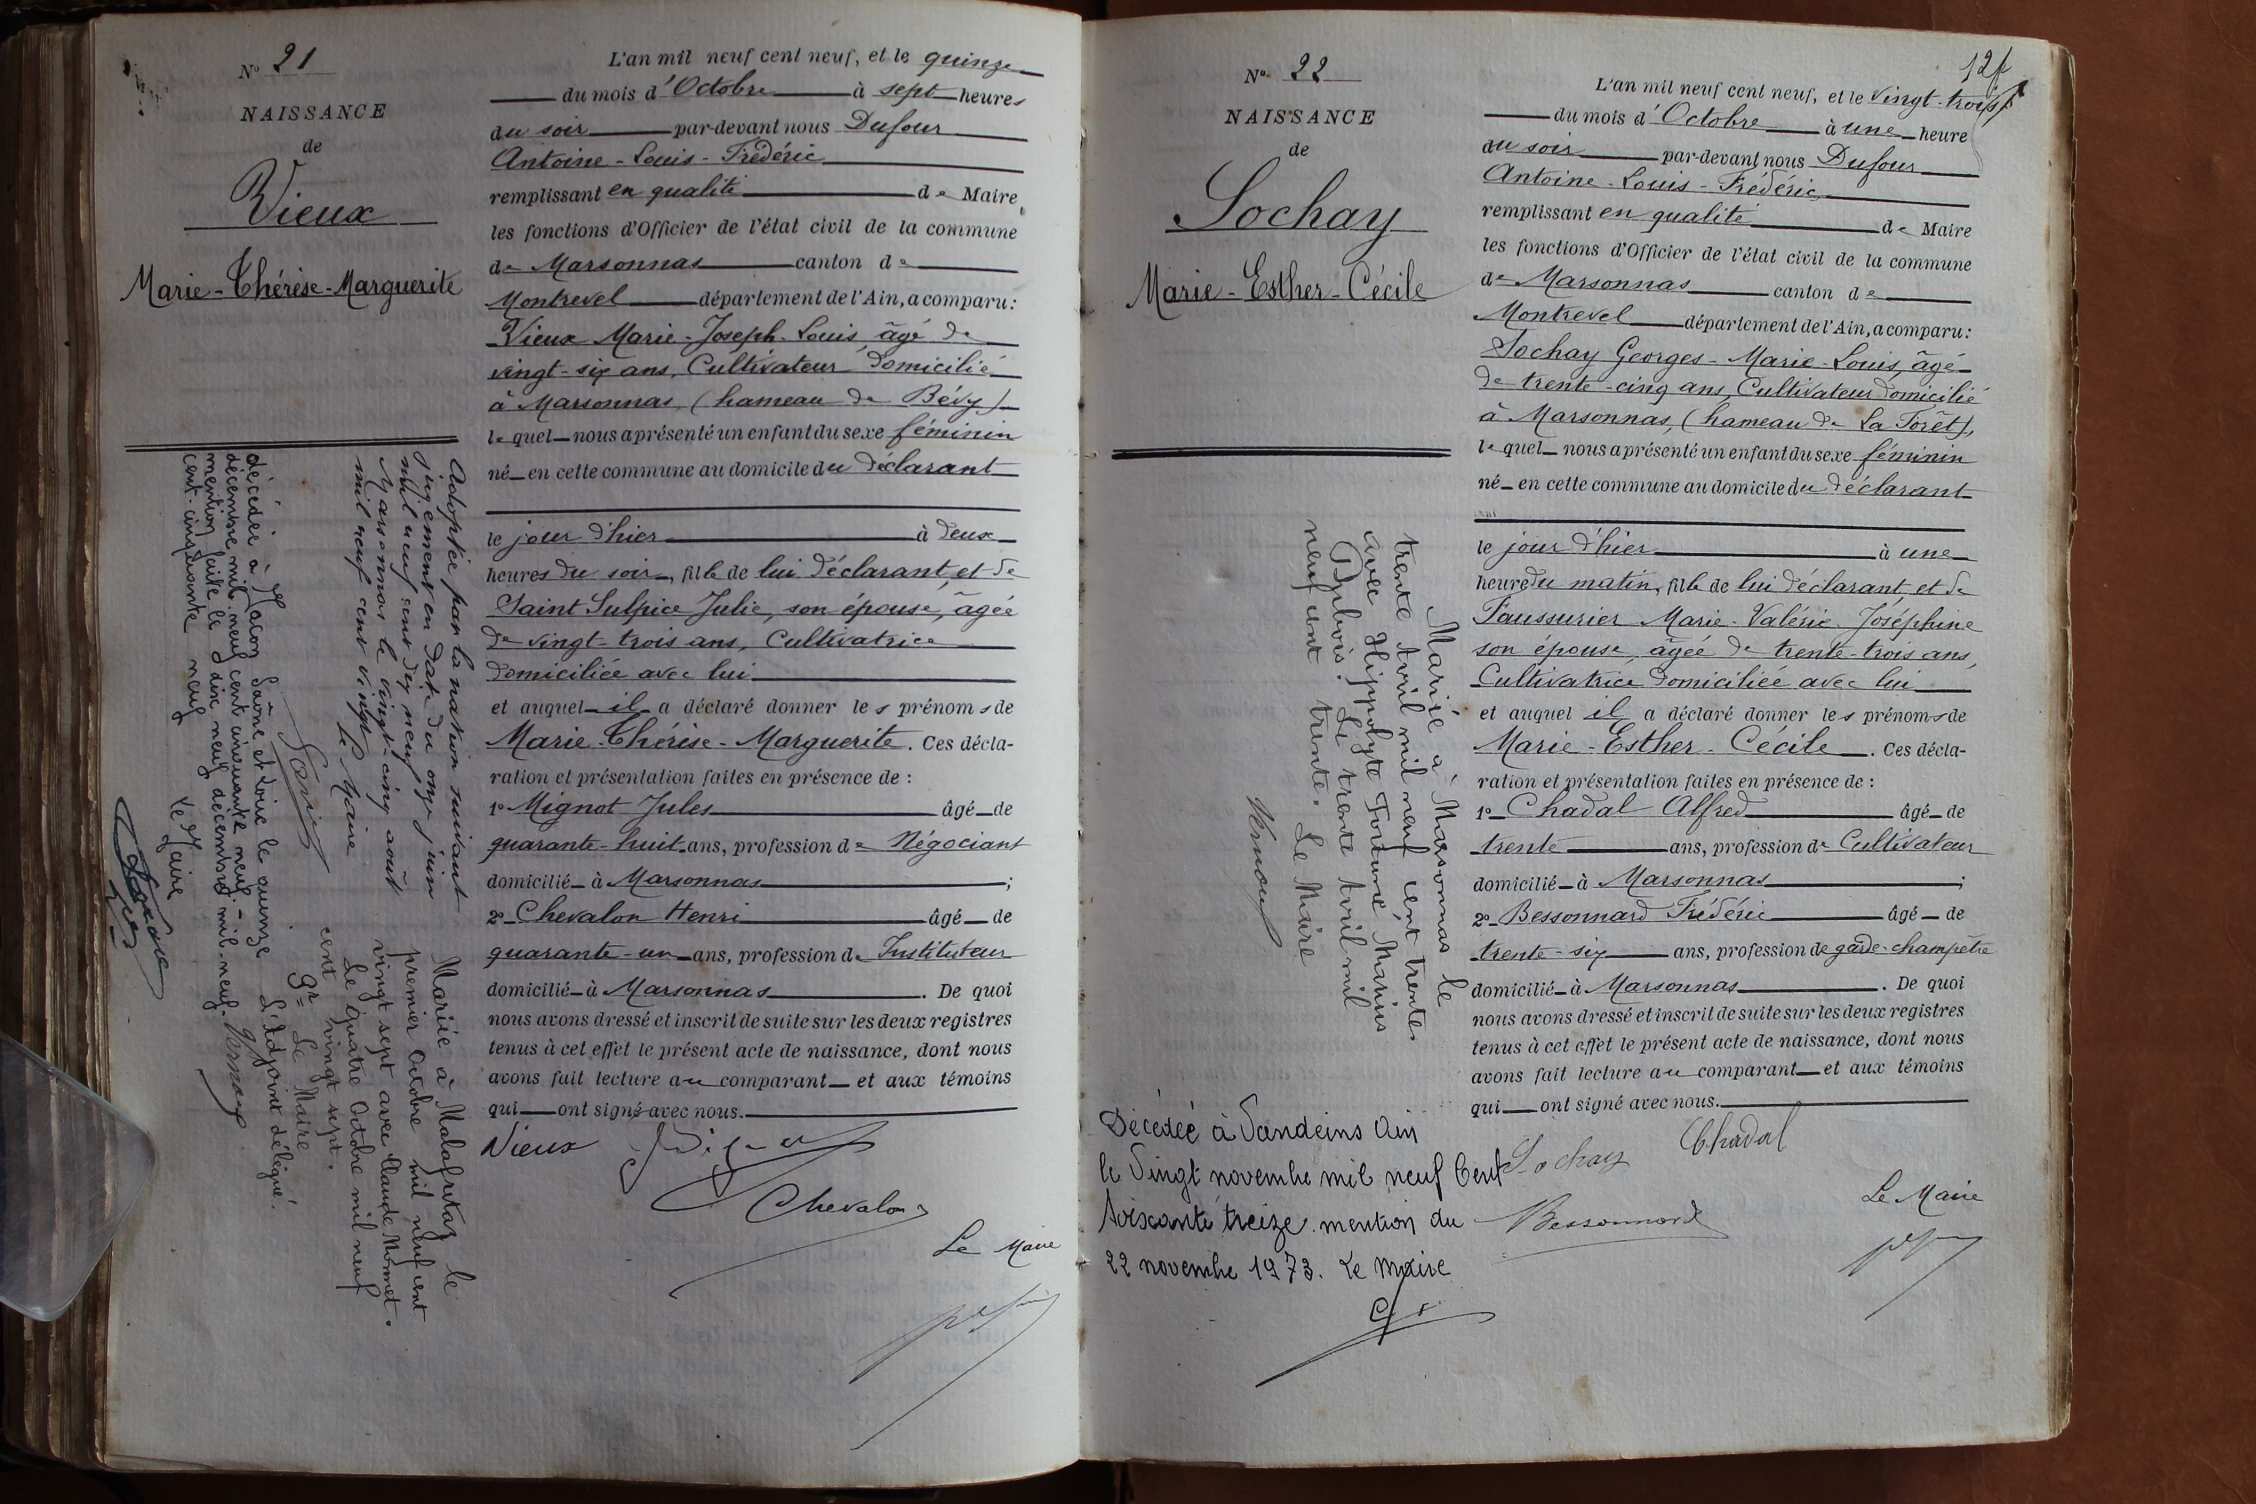 N° 21
NAISSANCE
de
Vieux
Marie-Thérèse-Marguerite
L'an mil neuf cent neuf, et le quinze
du mois d'Octobre à sept heures
du soir par-devant nous Dufour
Antoine-Louis-Frédéric
remplissant en qualité de Maire,
les fonctions d'Officier de l'état civil de la commune
de Marsonnas canton de
Montrevel département de l'Ain, a comparu:
Vieux Marie-Joseph-Louis, âgé de
vingt-six ans, Cultivateur domicilié
à Marsonnas, (hameau de Bévy)
lequel nous a présenté un enfant du sexe féminin
né en cette commune au domicile du déclarant
le jour d'hier à deux
heures du soir, fille de lui déclarant, et de
Saint Sulpice Julie, son épouse, âgée
de vingt-trois ans, Cultivatrice
domiciliée avec lui
et auquel il a déclaré donner les prénoms de
Marie-Thérèse-Marguerite. Ces décla-
ration et présentation faites en présence de :
1° Mignot Jules âgé de
quarante-huit ans, profession de Négociant
domicilié à Marsonnas ;
2° Chevalon Henri âgé de
quarante-un ans, profession d Instituteur
domicilié à Marsonnas. De quoi
nous avons dressé et inscrit de suite sur les deux registres
tenus à cet effet le présent acte de naissance, dont nous
avons fait lecture au comparant et aux témoins
qui ont signé avec nous.
Vieux
Chevalon
Le Maire
Adoptée par la nation suivant
jugement en date du onze juin
mil neuf cent dix neuf
Marsonnas le vingt-cinq août
mil neuf cent vingt
Le Maire
Mariée à Malafretaz le
premier Octobre mil neuf cent
vingt sept avec Claude Monnet.
Le quatre Octobre mil neuf
cent vingt sept.
Pr Le Maire
L'Adjoint délégué.
décédée à Macon Saône et Loire le quinze
décembre mil neuf cent cinquante neuf.-
mention faite le dix neuf décembre mil-neuf-
cent-cinquante neuf
Le Maire
N° 22
NAISSANCE
de
Sochay
Marie-Esther-Cécile
L'an mil neuf cent neuf, et le vingt-trois
du mois d'Octobre à une heure
du soir par-devant nous Dufour
Antoine-Louis-Frédéric
remplissant en qualité de Maire
les fonctions d'Officier de l'état civil de la commune
de Marsonnas canton de
Montrevel département de l'Ain, a comparu:
Sochay Georges-Marie-Louis, âgé
de trente-cinq ans, Cultivateur domicilié
à Marsonnas, (hameau de La Forêt),
lequel nous a présenté un enfant du sexe féminin
né en cette commune au domicile du déclarant
le jour d'hier à une
heure du matin, fille de lui déclarant, et de
Faussurier Marie-Valérie-Joséphine
son épouse, âgée de trente-trois ans,
Cultivatrice domiciliée avec lui
et auquel il a déclaré donner les prénoms de
Marie-Esther-Cécile. Ces décla-
ration et présentation faites en présence de :
1° Chadal Alfred âgé de
trente ans, profession de Cultivateur
domicilié à Marsonnas ;
2° Bessonnard Frédéric âgé de
trente-six ans, profession de garde-champêtre
domicilié à Marsonnas. De quoi
nous avons dressé et inscrit de suite sur les deux registres
tenus à cet effet le présent acte de naissance, dont nous
avons fait lecture au comparant et aux témoins
qui ont signé avec nous.
Sochay
Chadal
Bessonnard
Le Maire
Marié à Marsonnas le
trente Avril mil neuf cent trente
avec Hippolyte Fortuné Marius
Le trente Avril mil
neuf cent trente. Le Maire
Décédée à Vandeins Ain
le Vingt novembre mil neuf Cent
soixante treize. mention du
22 novembre 1973. Le Maire